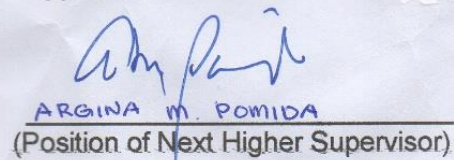 ARGINA M. POMIDA
(Position of Next Higher Supervisor)